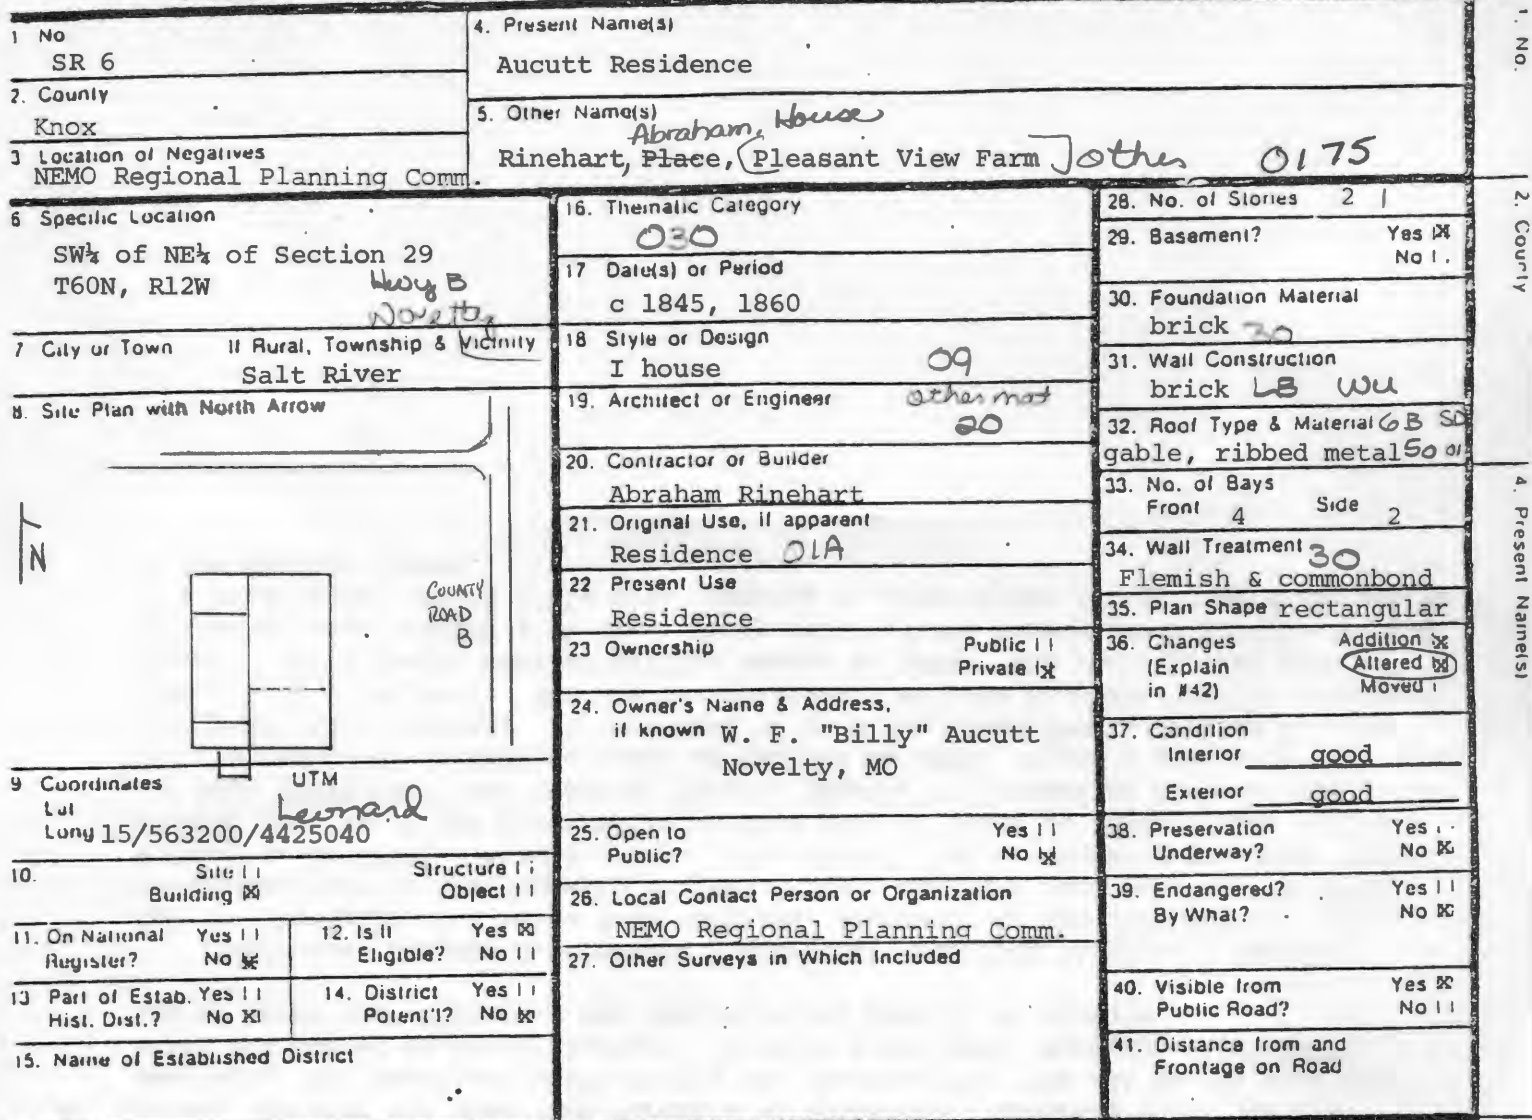 1 No
SR 6
2. County
Knox
3 Location of Negatives
NEMO Regional Planning Comm.
4. Present Name(s)
Aucutt Residence
5. Other Name(s)
Abraham House
Rinehart, Place, (Pleasant View Farm ] other 0175
6 Specific Location
SW¼ of NE¼ of Section 29
T60N, R12W
Hwy B
7 City or Town If Rural, Township & Vicinity
Salt River
8. Site Plan with North Arrow
N
COUNTY
ROAD
B
9 Coordinates UTM
Lat
Leonard
Long 15/563200/4425040
10. Site Structure
Building ☒ Object
11. On National Yes
Register? No ☒
12. Is It Yes ☒
Eligible? No
13 Part of Estab. Yes
Hist. Dist.? No ☒
14. District Yes
Potent'l? No ☒
15. Name of Established District
16. Thematic Category
030
17 Date(s) or Period
c 1845, 1860
18 Style or Design
I house 09
19. Architect or Engineer other mat
20
20. Contractor or Builder
Abraham Rinehart
21. Original Use, if apparent
Residence 01A
22 Present Use
Residence
23 Ownership Public
Private ☒
24. Owner's Name & Address,
if known W. F. "Billy" Aucutt
Novelty, MO
25. Open to Yes
Public? No ☒
26. Local Contact Person or Organization
NEMO Regional Planning Comm.
27. Other Surveys in Which Included
28. No. of Stories 2
29. Basement? Yes ☒
No
30. Foundation Material
brick 30
31. Wall Construction
brick LB WU
32. Roof Type & Material GB SD
gable, ribbed metal 50 01
33. No. of Bays
Front 4 Side 2
34. Wall Treatment 30
Flemish & commonbond
35. Plan Shape rectangular
36. Changes Addition ☒
(Explain Altered ☒
in #42) Moved
37. Condition
Interior good
Exterior good
38. Preservation Yes
Underway? No ☒
39. Endangered? Yes
By What? No ☒
40. Visible from Yes ☒
Public Road? No
41. Distance from and
Frontage on Road
1. No.
2. County
4. Present Name(s)